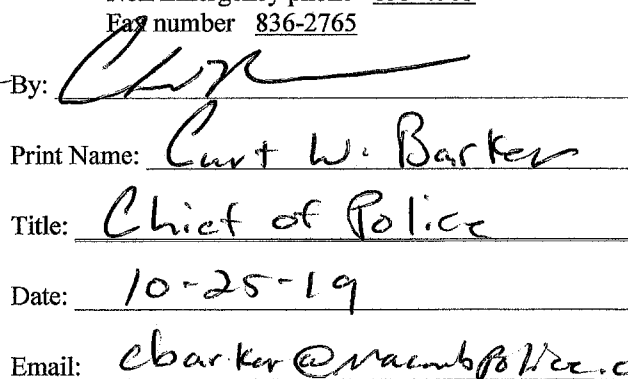 Fax number 836-2765
By:
Print Name: Curt W. Barker
Title: Chief of Police
Date: 10-25-19
Email: cbarker@macombpolice.c